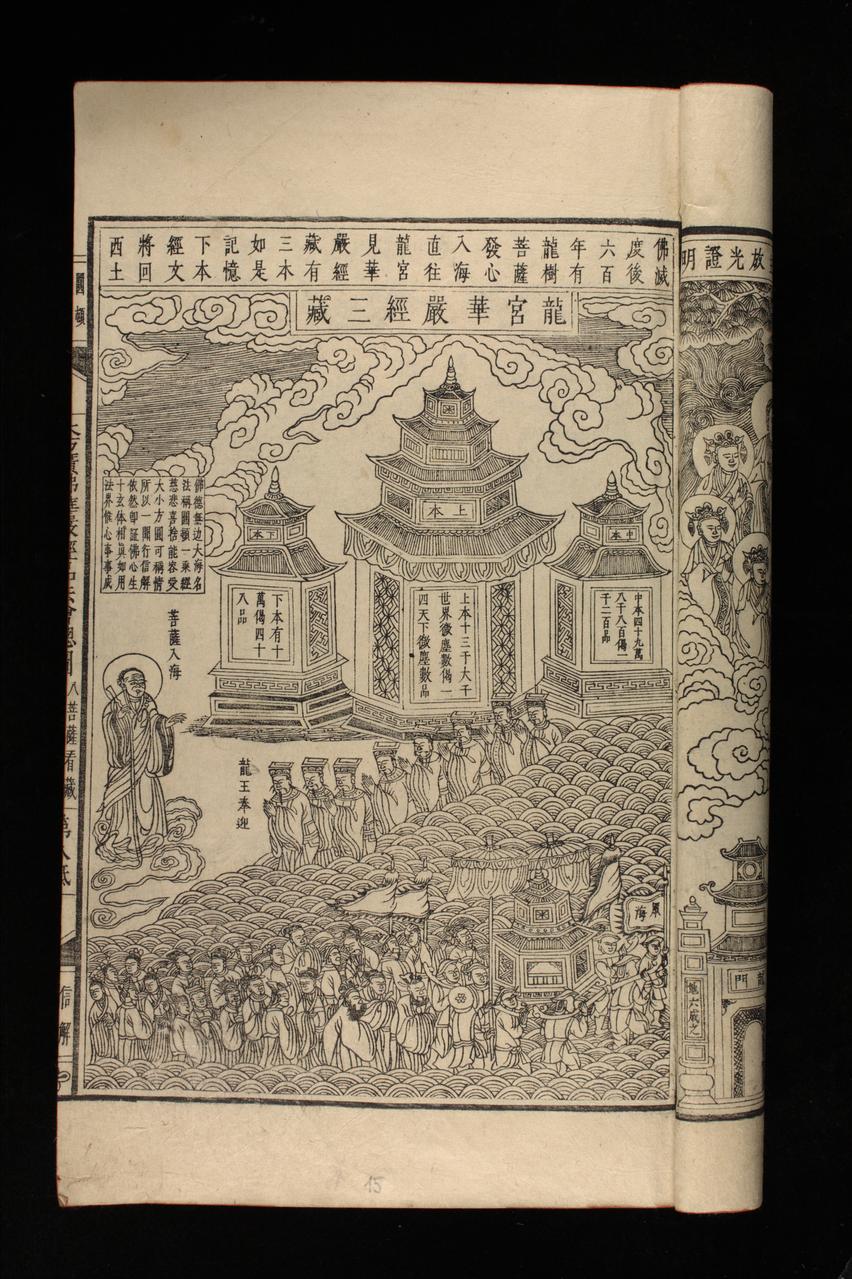 佛滅
度後
六百
年有
龍樹
菩薩
發心
入海
直往
龍宮
見華
嚴經
藏有
三本
如是
記憶
下本
經文
將回
西土
龍宮華嚴經三藏
上本
中本
下本
上本十三千大千
世界微塵數偈一
四天下微塵數品
中本四十九萬
八千八百偈一
千二百品
下本有十
萬偈四十
八品
佛德無边大海名
法稱圓頓一乘經
慈悲喜捨能容受
大小方圓可稱情
所以一開行信解
依然即証佛心生
十玄体相真如用
法界惟心事事成
菩薩入海
龍王奉迎
海
放光證明
門
六成之
圓頓
八菩薩看藏
信解
15